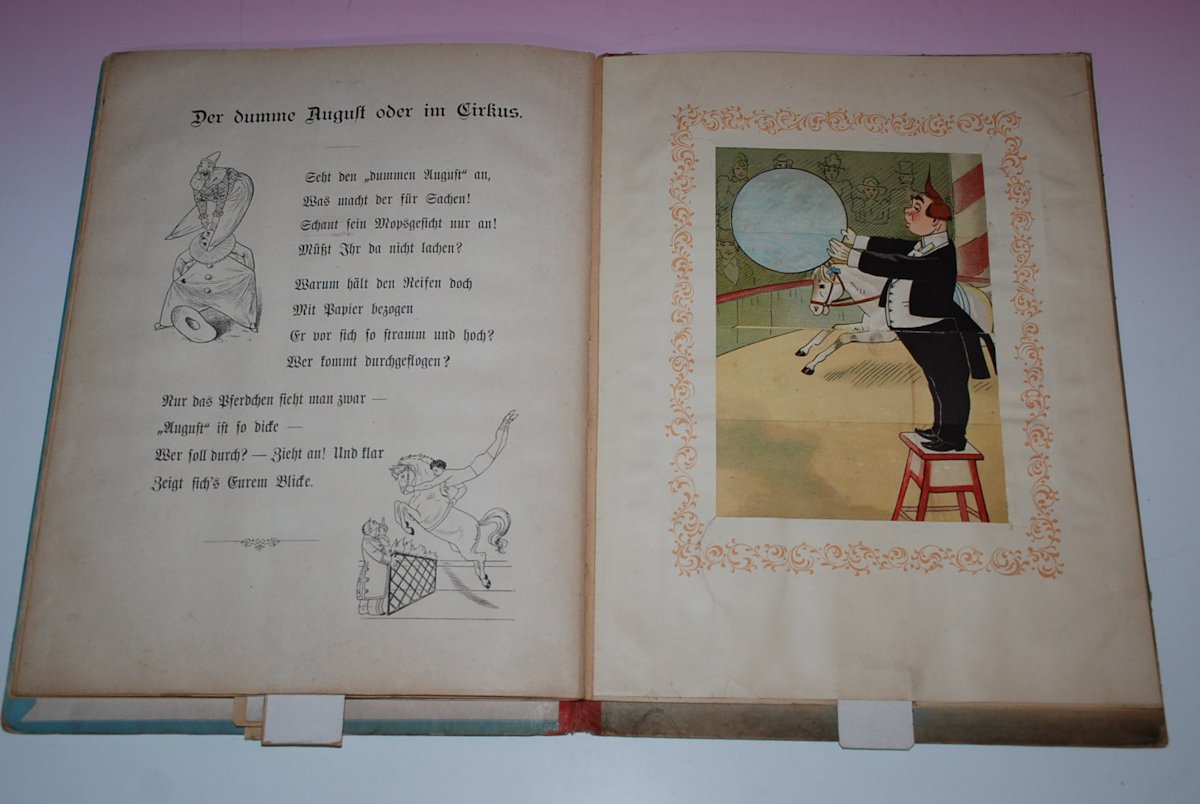 Der dumme August oder im Cirkus.
Seht den „dummen August“ an,
Was macht der für Sachen!
Schaut sein Mopsgesicht nur an!
Müßt Ihr da nicht lachen?
Warum hält den Reifen doch
Mit Papier bezogen
Er vor sich so stramm und hoch?
Wer kommt durchgeflogen?
Nur das Pferdchen sieht man zwar —
„August“ ist so dicke —
Wer soll durch? — Zieht an! Und klar
Zeigt sich's Eurem Blicke.